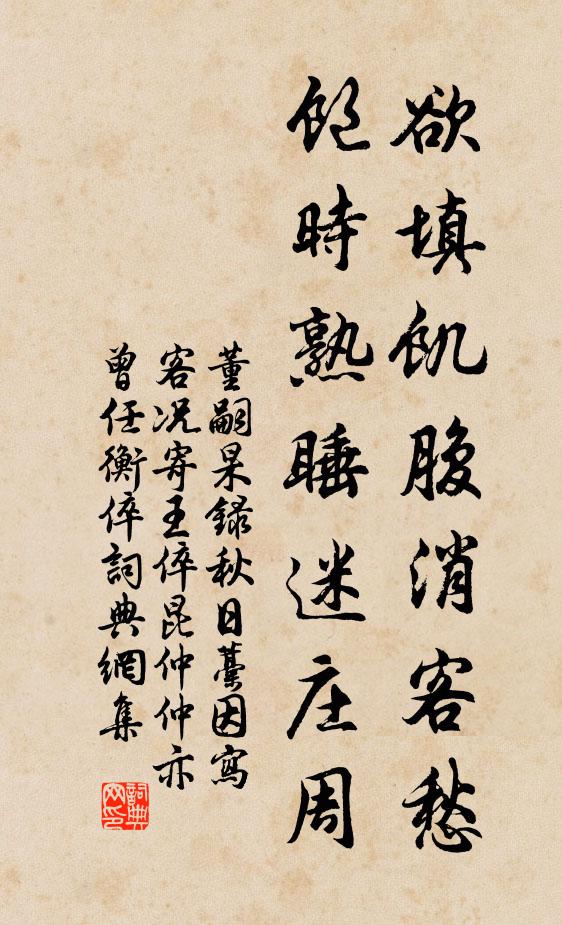 欲填飢腹消客愁
飽時熟睡迷庄周
董嗣杲録秋日藁因寫
客况寄王倅昆仲仲亦
曾任衡倅詞典網集
詞典
网印